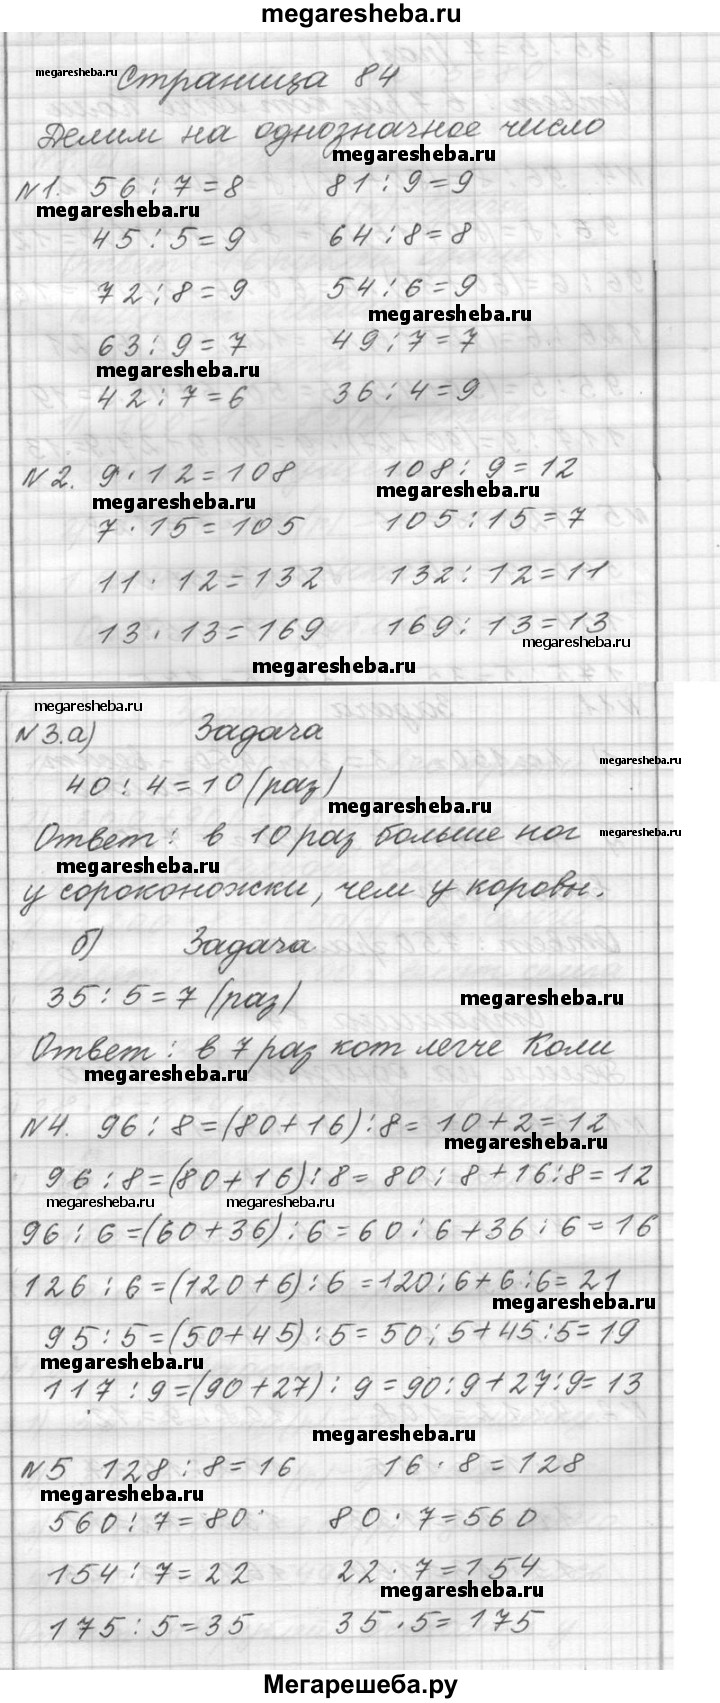 megaresheba.ru
megaresheba.ru Страница 84
Делим на однозначное число
megaresheba.ru
№1. 56:7=8 81:9=9
megaresheba.ru
45:5=9 64:8=8
72:8=9 54:6=9
megaresheba.ru
63:9=7 49:7=7
megaresheba.ru
42:7=6 36:4=9
№2. 9·12=108 108:9=12
megaresheba.ru megaresheba.ru
7·15=105 105:15=7
11·12=132 132:12=11
13·13=169 169:13=13
megaresheba.ru
megaresheba.ru
megaresheba.ru
№3.а) Задача
megaresheba.ru
40:4=10(раз)
megaresheba.ru
Ответ: в 10 раз больше ног
megaresheba.ru
megaresheba.ru
у сороконожки, чем у коровы.
б) Задача
35:5=7(раз)
megaresheba.ru
Ответ: в 7 раз кот легче Коли
megaresheba.ru
№4. 96:8=(80+16):8=10+2=12
megaresheba.ru
96:8=(80+16):8=80:8+16:8=12
megaresheba.ru megaresheba.ru
96:6=(60+36):6=60:6+36:6=16
126:6=(120+6):6=120:6+6:6=21
megaresheba.ru
95:5=(50+45):5=50:5+45:5=19
megaresheba.ru
117:9=(90+27):9=90:9+27:9=13
megaresheba.ru
№5 128:8=16 16·8=128
megaresheba.ru
560:7=80 80·7=560
154:7=22 22·7=154
megaresheba.ru
175:5=35 35·5=175
Мегарешеба.ру